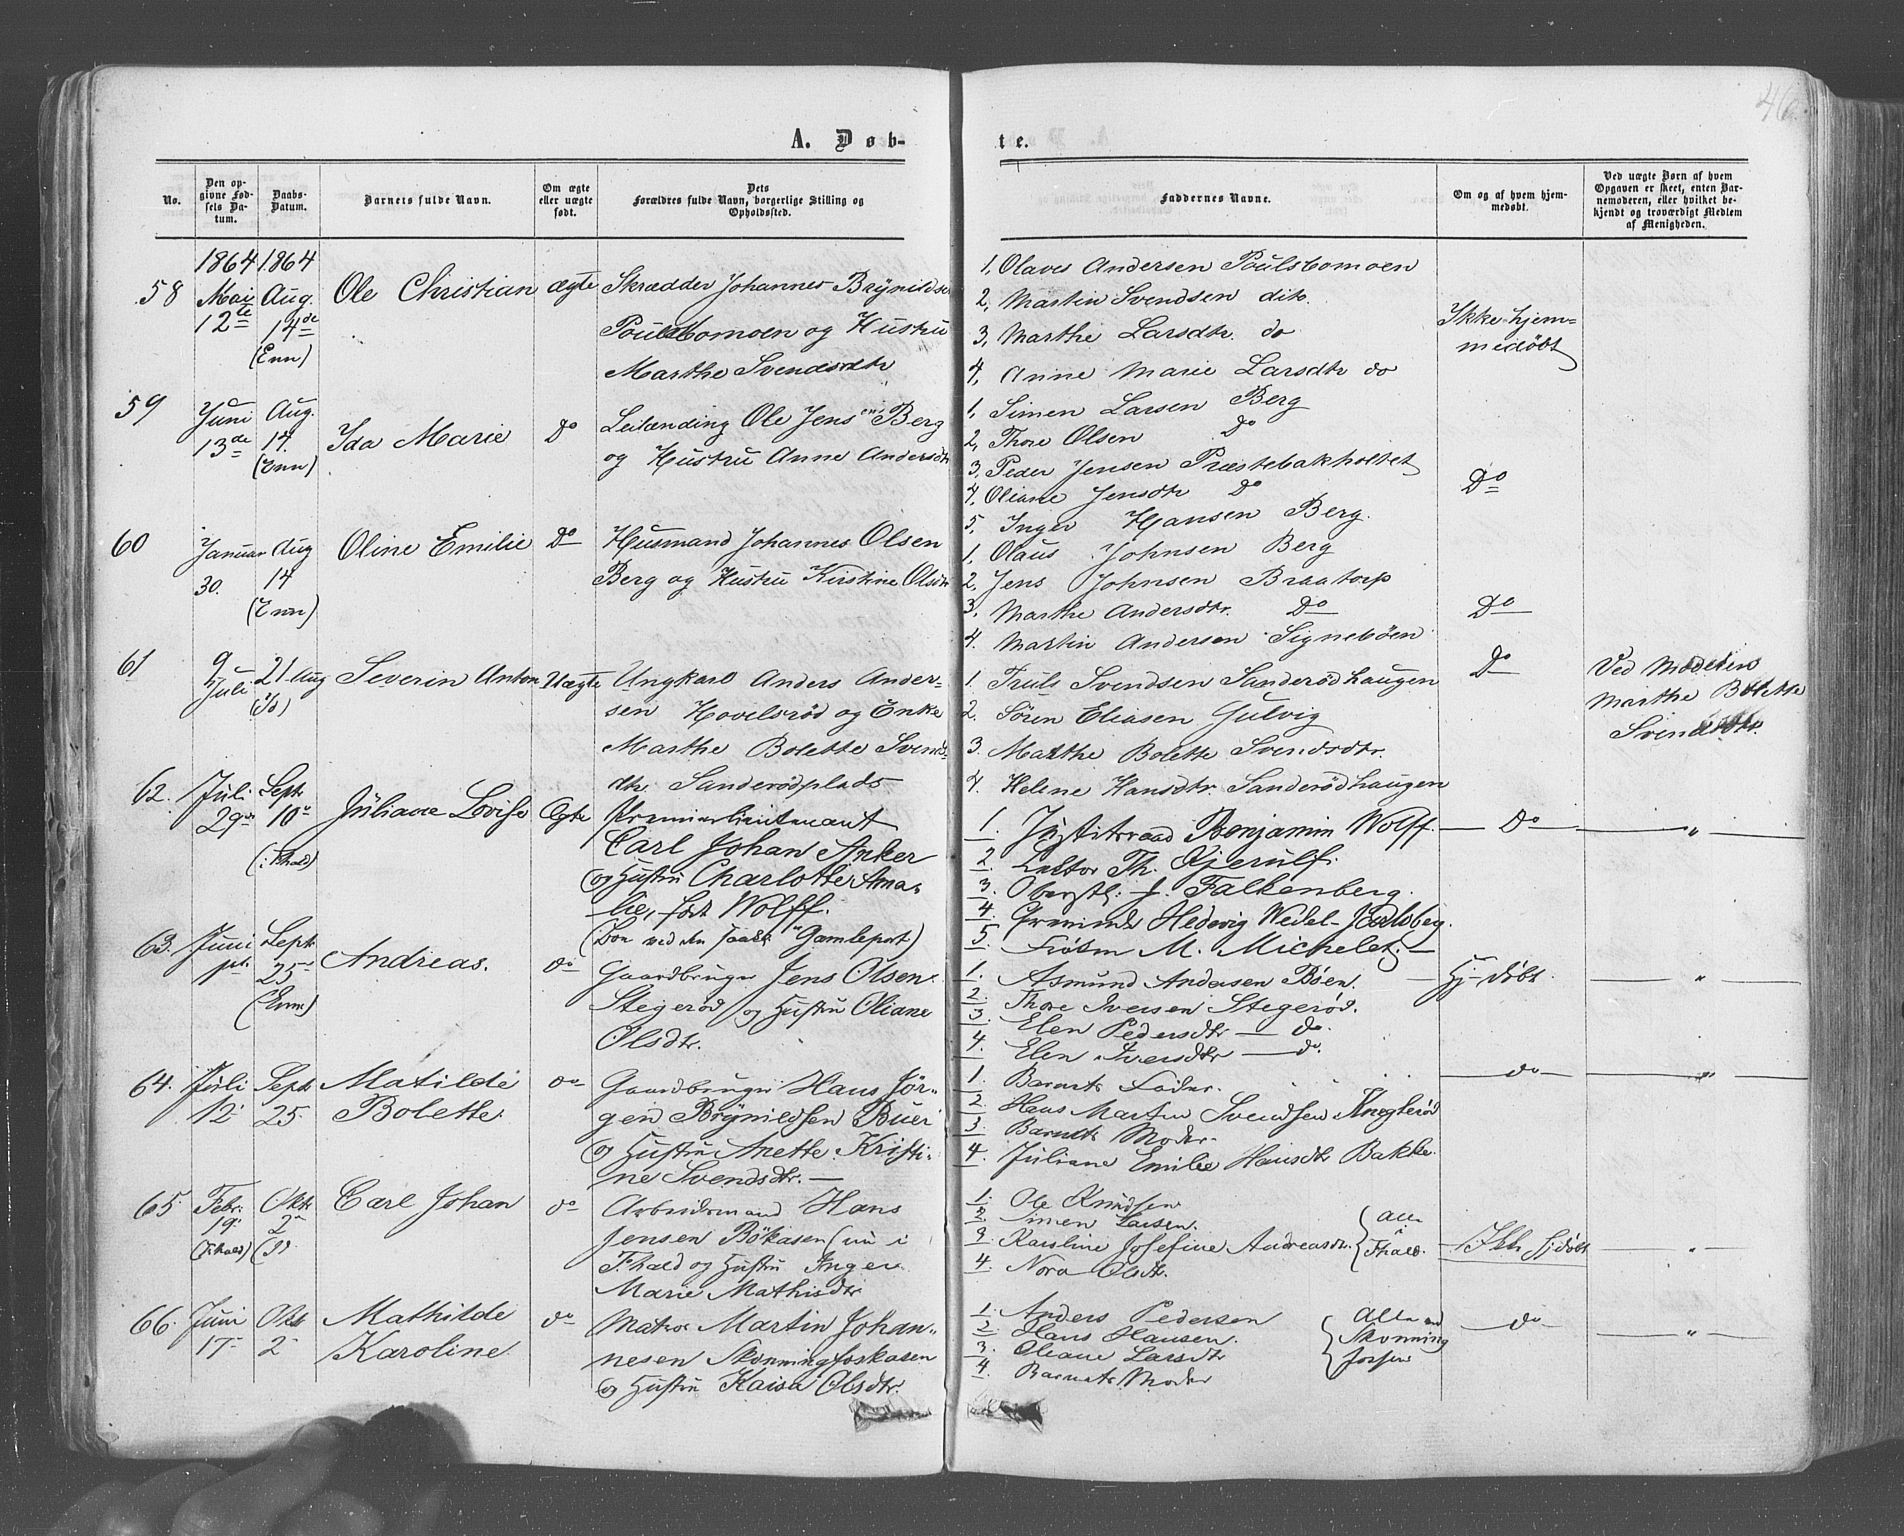 46.
A. Døb-
te.
No.
Den op-
givne Fød-
sels Da-
tum.
Daabs-
Datum.
Barnets fulde Navn.
Om ægte
eller uægte
født.
Dets
Forældres fulde Navn, borgerlige Stilling og
Opholdssted.
Faddernes Navne.
Om og af hvem hjem-
medøbt.
Ved uægte Børn af hvem
Opgaven er skeet, enten Bar-
nemoderen, eller hvilket be-
kjendt og troværdigt Medlem
af Menigheden.
1864
1864
58
Mai
12te
Aug.
14de
(Enn)
Ole Christian
ægte
Skrædder Johannes Brynilds
Poulsbomoen og Hustru
Marthe Svendsdtr
1, Olaves Andersen Poulsbomoen
2, Martin Svendsen dito.
3, Marthe Larsdtr. do
4, Anne Marie Larsdtr do
Ikke hjem=
medøbt
59
Juni
13de
Aug.
14.
(Enn)
Ida Marie
Do
Leilænding Ole Jensen Berg
og Hustru Anne Andersdtr
1, Simen Larsen Berg
2, Thore Olsen Do
3, Peder Jensen Præstebakholtet
4, Oliane Jensdtr Do
5, Inger Hansen Berg.
Do
60
Januar
30.
Aug
14
(Enn)
Oline Emilie
Do
Husmand Johannes Olsen
Berg og Hustru Kirstine Olsdtr
1, Olaus Johnsen Berg
2, Jens Johnsen Braatorp
3, Marthe Andersdtr. Do
4. Martin Andersen Signebøen
Do
61
9
Juli
21 Aug
(Id)
Severin Anton
Uægte
Ungkarl Anders Ander-
sen Hovelsrød og Enke
Marthe Bolette Svends
dtr. Sanderødplads
1. Truls Svendsen Sanderødhaugen
2. Søren Eliasen Gulvig
3. Marthe Bolette Svendsdtr.
4. Helene Hansdtr. Sanderødhaugen
Do
Ved Moderen
Marthe Bolette
Svendsdtr.
62.
Juli
29de
Septr
10de
(i Fhald)
Juliane Lovise
Ægte
Premierlieutenant
Carl Johan Anker
og Hustru Charlotte Ama-
lie, født Wolff.
(Boe ved den  "Gamleport)
1. Justitsraad Benjamin Wolff.
2. Lektor Th. Kjerulf.
3. Oberstl. J. Falkenberg.
4. Hedevig Wedel-Jarlsberg.
5. Frøken M. Michelet. —
— Do —
"
63.
Juni
Septr
25de
(Enn)
Andreas.
do
Gaardbruger Jens Olsen
Stegerød og Hustru Oliane
Olsdtr.
1. Asmund Andersen Bøen.
2. Thore Iversen Stegerød.
3. Elen Pedersdtr — do.
4. Elen Iversdtr — do.
Hj-døbt.
"
64.
Juli
12
Septr
25.
Matilde
Bolette.
do
Gaardbruger Hans Jør-
gen Brynildsen Buer
og Hustru Anette Kristi-
ne Svendsdtr. —
1. Barnets Fader.
2. Hans Martin Svendsen
3. Barnets Moder.
4. Juliane Emilie Hansdtr Bakke.
do
"
65.
Febr.
19.
(Fhald)
Oktr
2
(Id
Carl Johan
do
Arbeidsmand Hans
Jensen Bøkasen (nu i
Fhald og Hustru Inger
Marie Mathisdtr
1. Ole Knudsen
2. Simen Larsen.
3. Karoline Josefine Andreasdtr.
4. Nora Olsdtr.
Alle
i
Fhald.
Ikke hjdøbt
"
66.
Juni
17
Oktr
2
Mathilde
Karoline.
do
Matros Martin Johan-
nesen Skonningfoskasen
og Hustru Kaisa Olsdtr.
1. Anders Pedersen
2. Hans Hansen.
3. Oliane Larsdtr
4. Barnets Moder
Alle ved
Skonning
do
"